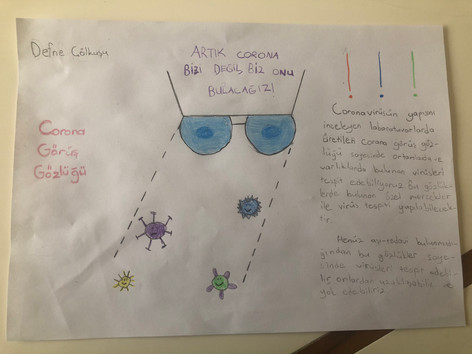 Defne Gölkuşu
ARTIK CORONA
BİZİ DEĞİL, BİZ ONU
BULACAĞIZ!
Corona
Görüş
Gözlüğü
! ! !
Coronavirüsün yapısını
inceleyen laboratuvarlarda
üretilen corona görüş göz-
lüğü sayesinde ortamlarda ve
varlıklarda bulunan virüsleri
tespit edebiliyoruz. Bu gözlük-
lerde bulunan özel mercekler
ile virüs tespiti yapılabilecek-
tir.
Henüz aşı bulunma-
dığından bu gözlükler saye-
sinde virüsleri tespit edebi-
lir onlardan uzaklaşabilir ve
yok edebiliriz.